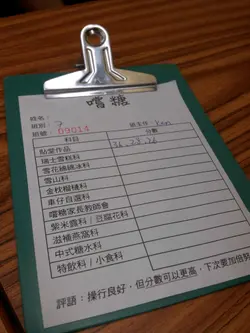 嚐糖
姓名:
班別: 7
班主任: Ken
班號: 09014
科目 分數
點愛作品 36, 28, 28
瑞士雪糕科
雪花綿綿冰科
雪山科
金枕榴槤科
車仔自選科
嚐糖家長教師會
紫米露科 / 豆腐花科
滋補燕窩科
中式糖水科
特飲科 / 小食科
評語: 操行良好,但分數可以更高,下次要加倍